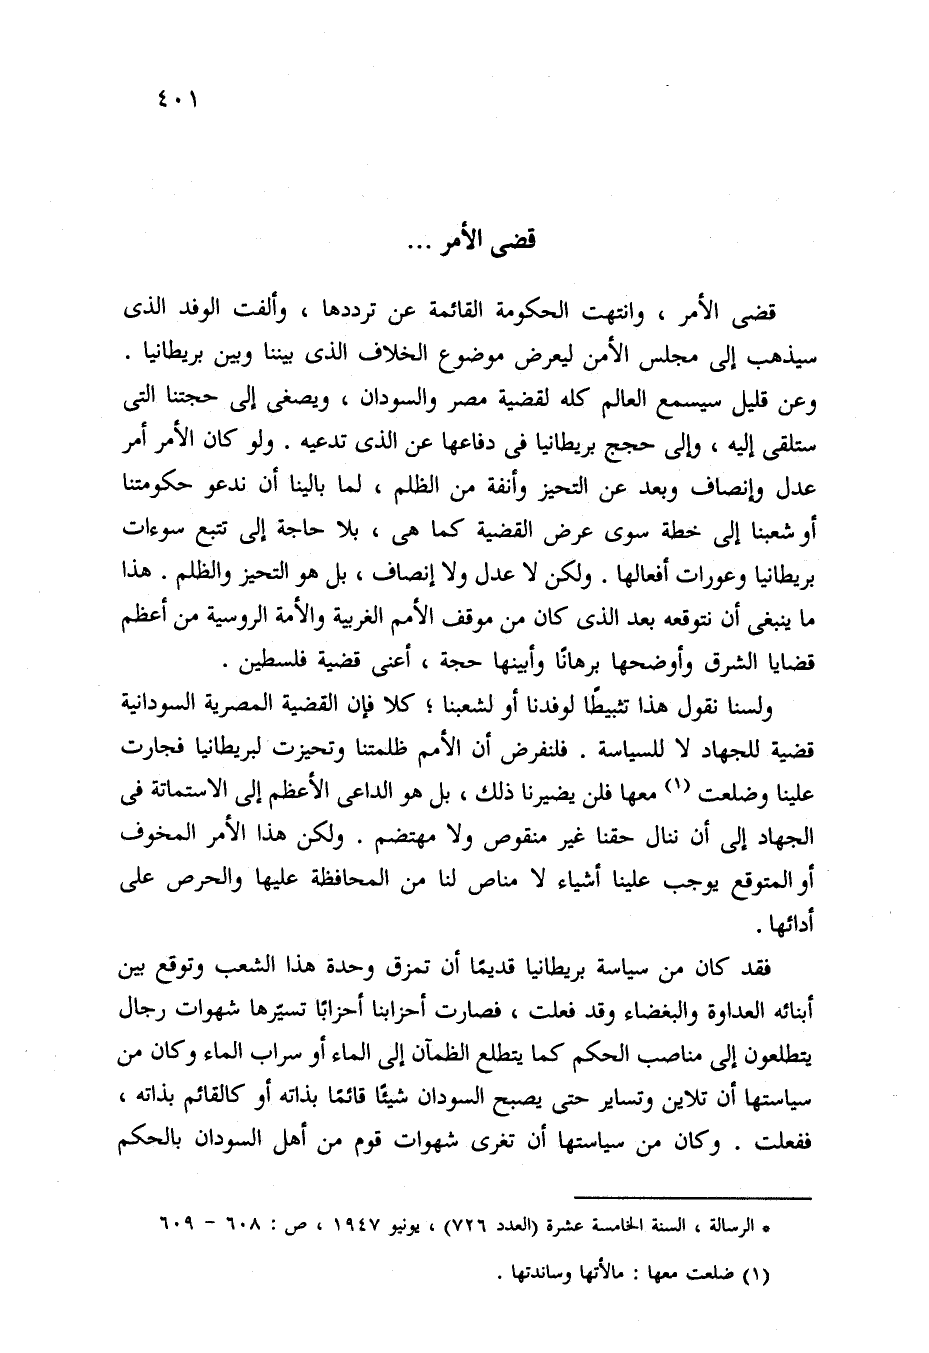 ٤٠١
قضى الأمر ...
قضى الأمر ، وانتهت الحكومة القائمة عن ترددها ، وألفت الوفد الذى
سيذهب إلى مجلس الأمن ليعرض موضوع الخلاف الذى بيننا وبين بريطانيا .
وعن قليل سيسمع العالم كله لقضية مصر والسودان ، ويصغى إلى حجتنا التى
ستلقى إليه ، وإلى حجج بريطانيا فى دفاعها عن الذى تدعيه . ولو كان الأمر أمر
عدل وإنصاف وبعد عن التحيز وأنفة من الظلم ، لما بالينا أن ندعو حكومتنا
أو شعبنا إلى خطة سوى عرض القضية كما هى ، بلا حاجة إلى تتبع سوءات
بريطانيا وعورات أفعالها . ولكن لا عدل ولا إنصاف ، بل هو التحيز والظلم . هذا
ما ينبغى أن نتوقعه بعد الذى كان من موقف الأمم الغربية والأمة الروسية من أعظم
قضايا الشرق وأوضحها برهانًا وأبينها حجة ، أعنى قضية فلسطين .
ولسنا نقول هذا تثبيطًا لوفدنا أو لشعبنا ؛ كلا فإن القضية المصرية السودانية
قضية للجهاد لا للسياسة . فلنفرض أن الأمم ظلمتنا وتحيزت لبريطانيا فجارت
علينا وضلعت (١) معها فلن يضيرنا ذلك ، بل هو الداعى الأعظم إلى الاستماتة فى
الجهاد إلى أن ننال حقنا غير منقوص ولا مهتضم . ولكن هذا الأمر المخوف
أو المتوقع يوجب علينا أشياء لا مناص لنا من المحافظة عليها والحرص على
أدائها .
فقد كان من سياسة بريطانيا قديمًا أن تمزق وحدة هذا الشعب وتوقع بين
أبنائه العداوة والبغضاء وقد فعلت ، فصارت أحزابنا أحزابًا تسيّرها شهوات رجال
يتطلعون إلى مناصب الحكم كما يتطلع الظمآن إلى الماء أو سراب الماء وكان من
سياستها أن تلاين وتساير حتى يصبح السودان شيئًا قائمًا بذاته أو كالقائم بذاته ،
ففعلت . وكان من سياستها أن تغرى شهوات قوم من أهل السودان بالحكم
* الرسالة ، السنة الخامسة عشرة (العدد ٧٢٦) ، يونيو ١٩٤٧ ، ص : ٦٠٨ - ٦٠٩
(١) ضلعت معها : مالأتها وساندتها .